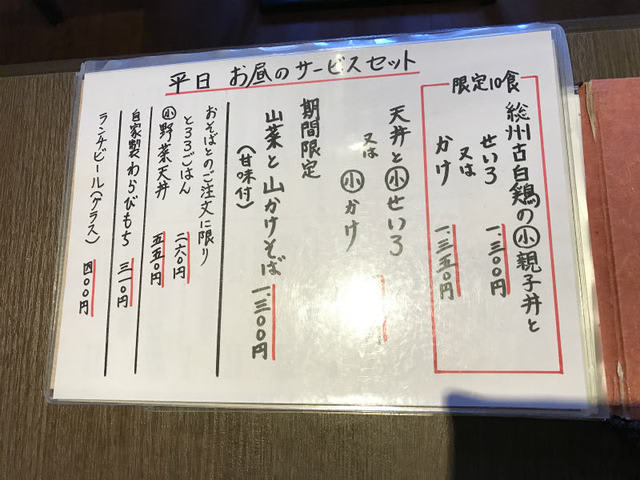 平日 お昼のサービスセット
限定10食
総州古白鶏の小親子丼と
せいろ 一、三〇〇円
又は
かけ 一、三五〇円
天丼と小せいろ
又は
小かけ
期間限定
山菜と山かけそば 一、三〇〇円
（甘味付）
おそばとのご注文に限り
とろろごはん 二六〇円
小野菜天丼 五五〇円
自家製わらびもち 三一〇円
ランチビール（グラス） 四〇〇円